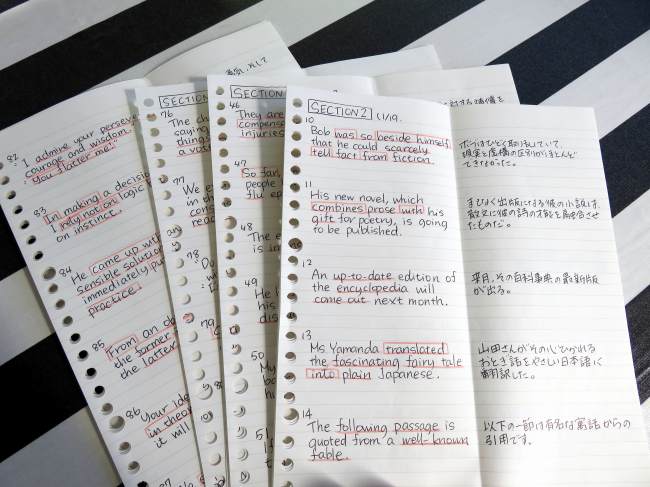 82
I admire your perseve
courage and wisdom.
You flatter me!"
83
In making a decisi
I rely not on logic
on instinct.
84
He came up with
sensible solution
immediately put
practice.
85
From an ob
the former
the latter
86
Your ide
in theor
it will
SECTION
76
The ch
saying
things
a vot
77
We e
in th
con
read
78
"Du
79
SECTION
46
They are
compens
injuries
47
So far,
people
flu ep
48
The e
is in
49
He l
his
dis
50
My
bo
hi
51
SECTION 2 (1/19.
10
Bob was so beside himself
that he could scarcely
tell fact from fiction.
ボブはひどく取り乱していて、
現実と虚構の区別がほとんど
できなかった。
11
His new novel, which
combines prose with his
gift for poetry, is going
to be published.
まもなく出版になる彼の小説は、
散文に彼の詩の才能を融合させ
たものだ。
12
An up-to-date edition of
the encyclopedia will
come out next month.
来月、その百科事典の最新版
が出る。
13
Ms Yamanda translated
the fascinating fairy tale
into plain Japanese.
山田さんがその心ひかれる
おとぎ話をやさしい日本語に
翻訳した。
14
The following passage is
quoted from a well-known
fable.
以下の一節は有名な寓話からの
引用です。